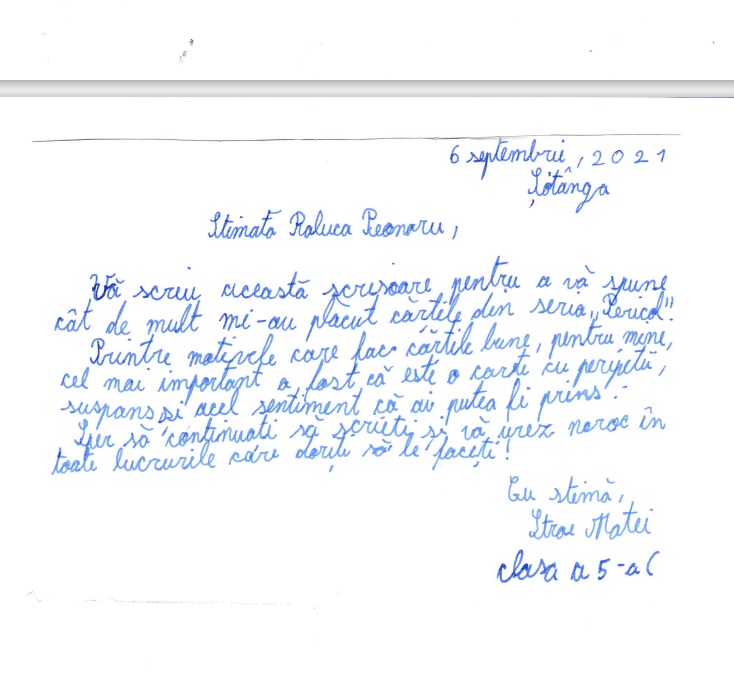 6 septembrie, 2021
Șotânga
Stimată Raluca Poenaru,
Vă scriu această scrisoare pentru a vă spune
cât de mult mi-au plăcut cărțile din seria „Pericol”.
Printre motivele care fac cărțile bune, pentru mine,
cel mai important a fost că este o carte cu peripeții,
suspans și acel sentiment că ai putea fi prins.
Sper să continuați să scrieți și vă urez noroc în
toate lucrurile care doriți să le faceți!
Cu stimă,
Stroe Matei
clasa a 5-a C